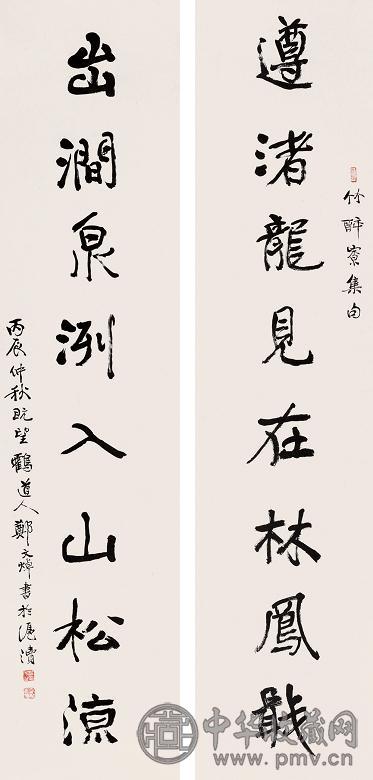 遵渚龍見在林鳳戢
竹醉寮集句
出澗泉洌入山松涼
丙辰仲秋既望鶴道人鄭文焯書於滬瀆
中华收藏网
www.pmv.cn